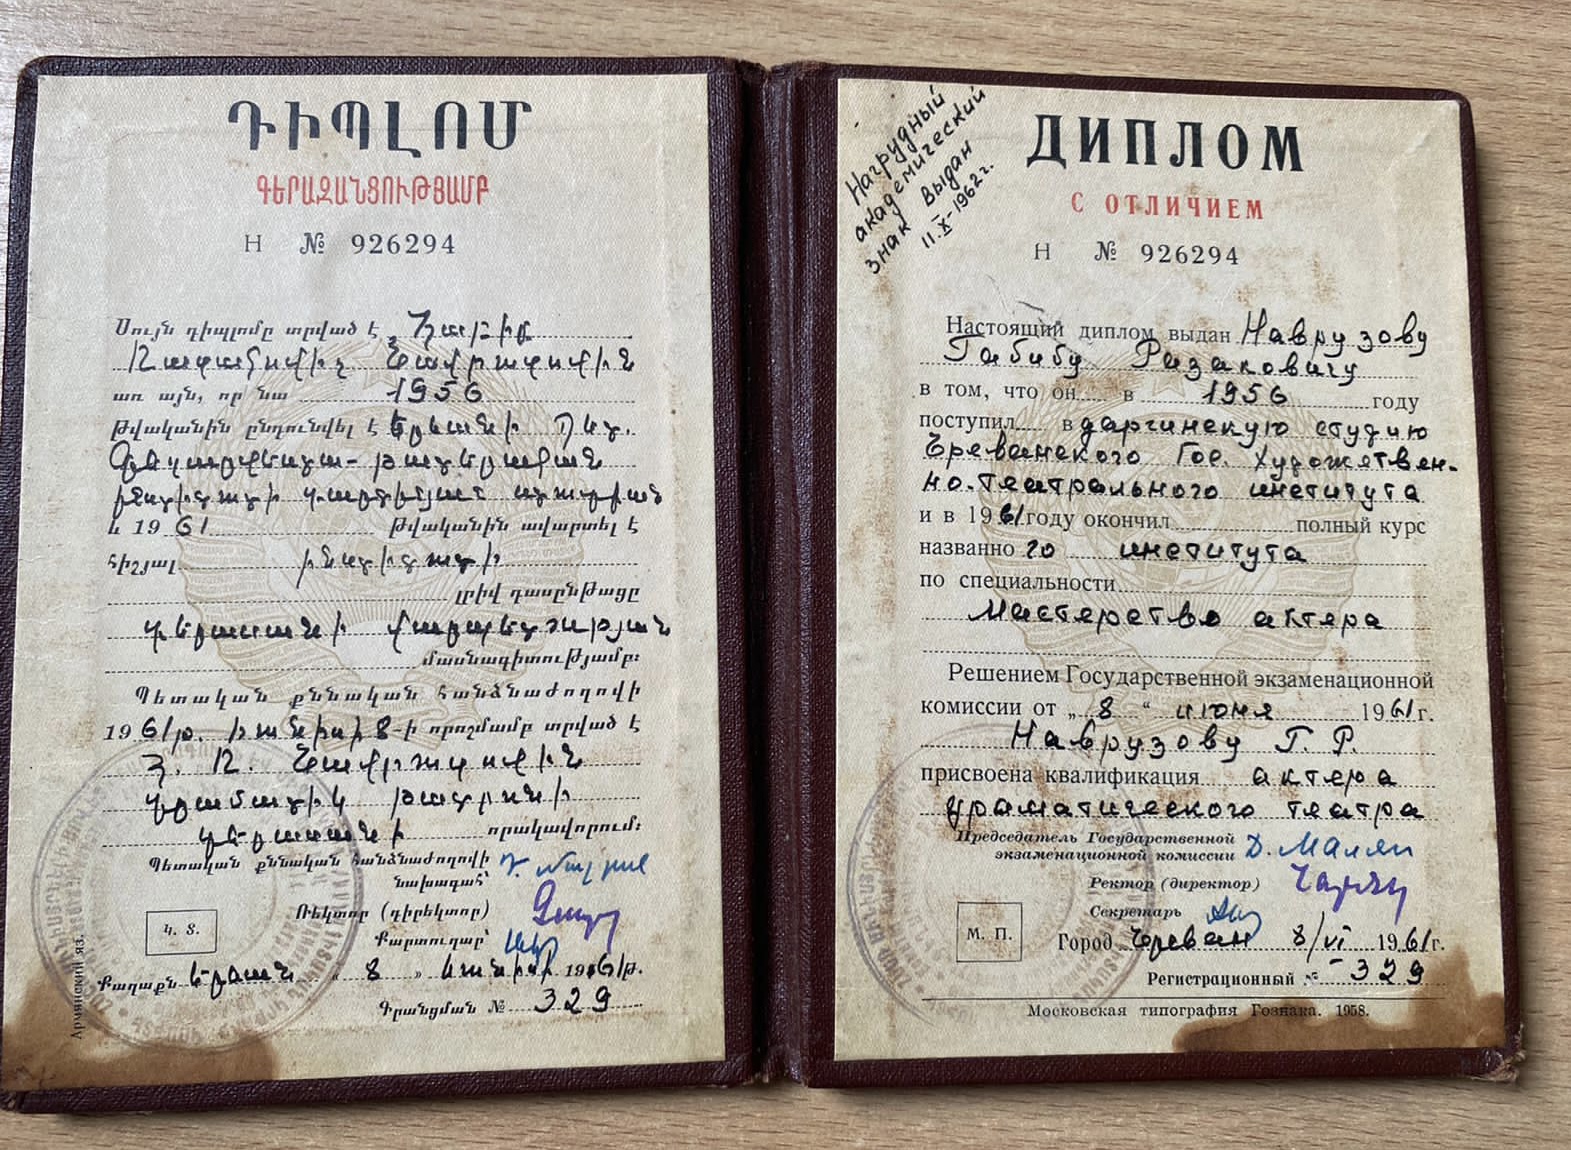 ԴԻՊԼՈՄ
ԳԵՐԱԶԱՆՑՈՒԹՅԱՄԲ
Н № 926294
Սույն դիպլոմը տրված է Հաբիբ
Ռազակովիչ Նավրուզովին
առ այն, որ նա 1956
թվականին ընդունվել է Երևանի Պետ.
Գեղարվեստա-թատերական
ինստիտուտի
և 1961 թվականին ավարտել է
հիշյալ ինստիտուտի
լրիվ դասընթացը
դերասանի վարպետության
մասնագիտությամբ։
Պետական քննական հանձնաժողովի
1961թ. հունիսի 8-ի որոշմամբ տրված է
Հ. Ռ. Նավրուզովին
դրամատիկ թատրոնի
դերասանի որակավորում։
Պետական քննական հանձնաժողովի
նախագահ՝
Ռեկտոր (դիրեկտոր)
Քարտուղար՝
Կ. Տ.
Քաղաքն Երևան „ 8 „ հունիսի 1961թ.
Գրանցման № 329
Армянский яз.
Нагрудный
академический
знак выдан
11.X-1962г.
ДИПЛОМ
С ОТЛИЧИЕМ
Н № 926294
Настоящий диплом выдан Наврузову
Габибу Разаковичу
в том, что он в 1956 году
поступил в даргинскую студию
Ереванского Гос. Художествен-
но-театрального института
и в 1961 году окончил полный курс
названно го института
по специальности
Мастерство актера
Решением Государственной экзаменационной
комиссии от „ 8 “ июня 1961 г.
Наврузову Г. Р.
присвоена квалификация актера
драматического театра
Председатель Государственной
экзаменационной комиссии Д. Малян
Ректор (директор)
Секретарь
М. П.
Город Ереван 8/VI 1961г.
Регистрационный № 329
Московская типография Гознака. 1958.